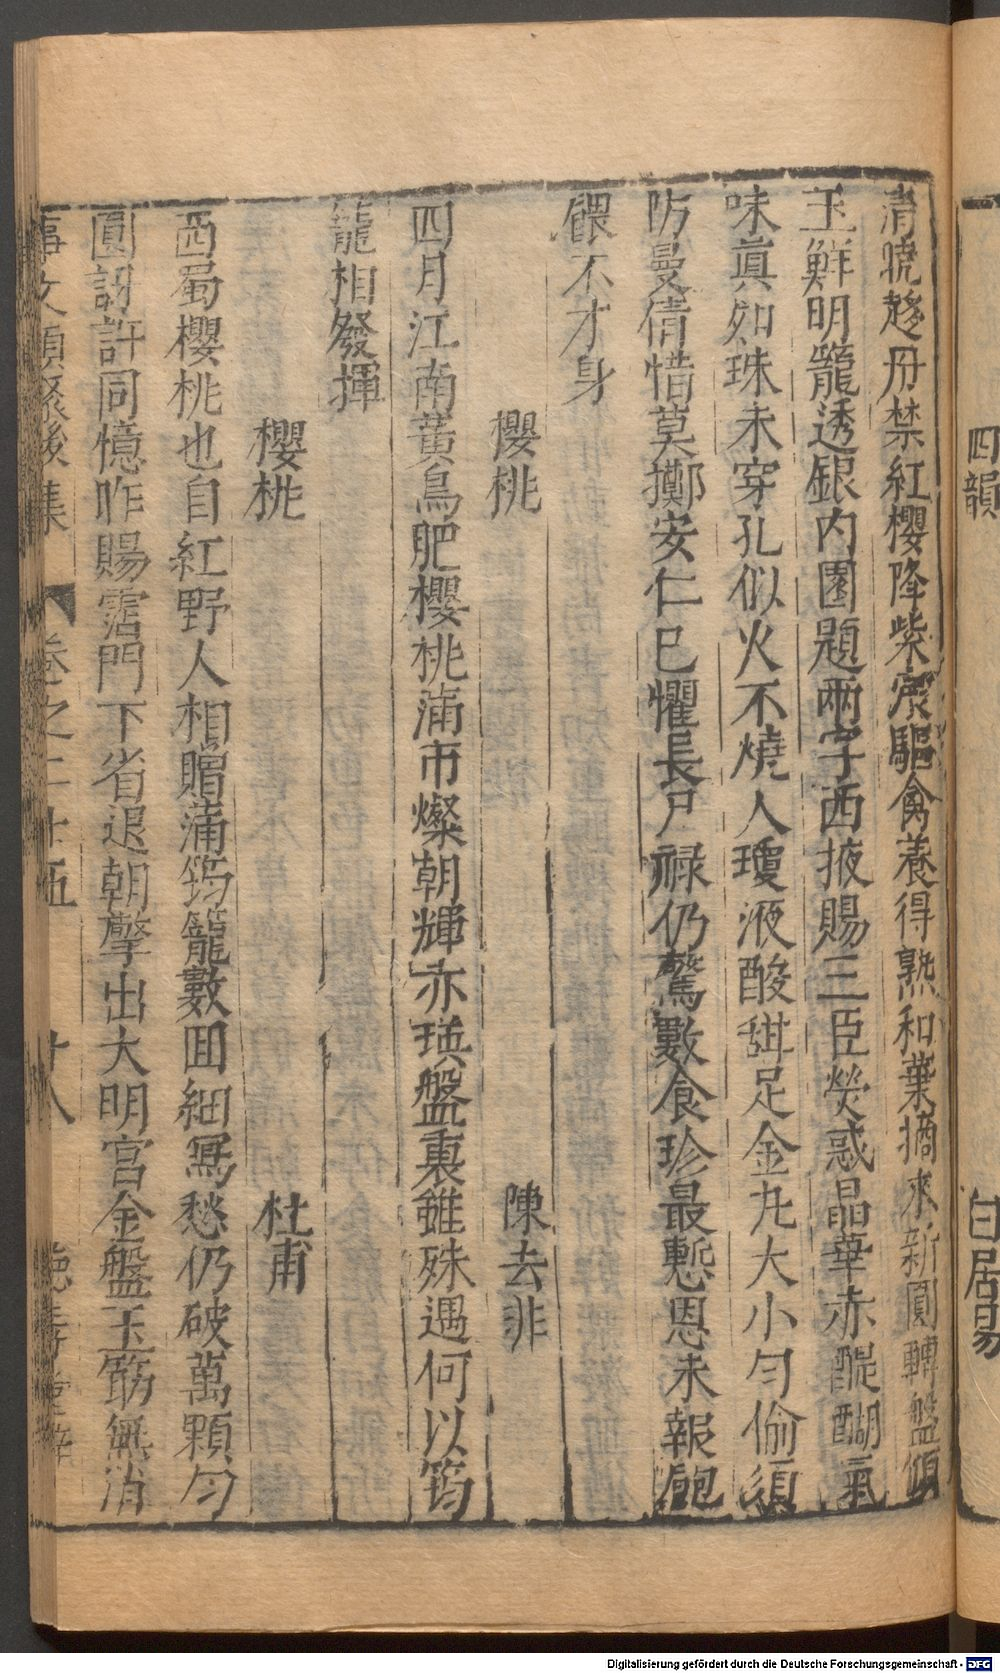 四韻
白居易
清曉趂丹禁紅櫻降紫宸驅禽養得熟和葉摘來新圓轉盤傾
玉鮮明籠透銀內園題兩字西掖賜三臣熒惑晶華赤醍醐氣
味真如珠未穿孔似火不燒人瓊液酸甜足金丸大小勻偷須
防曼倩惜莫擲安仁已懼長尸祿仍驚數食珍最慙恩未報飽
餵不才身
櫻桃
陳去非
四月江南黃鳥肥櫻桃滿市燦朝輝赤瑛盤裏雖殊遇何以筠
籠相發揮
櫻桃
杜甫
西蜀櫻桃也自紅野人相贈滿筠籠數囬細寫愁仍破萬顆勻
圓訝許同憶昨賜霑門下省退朝擎出大明宮金盤玉筯無消
事文類聚後集
卷之二十五
十八
Digitalisierung gefördert durch die Deutsche Forschungsgemeinschaft - DFG